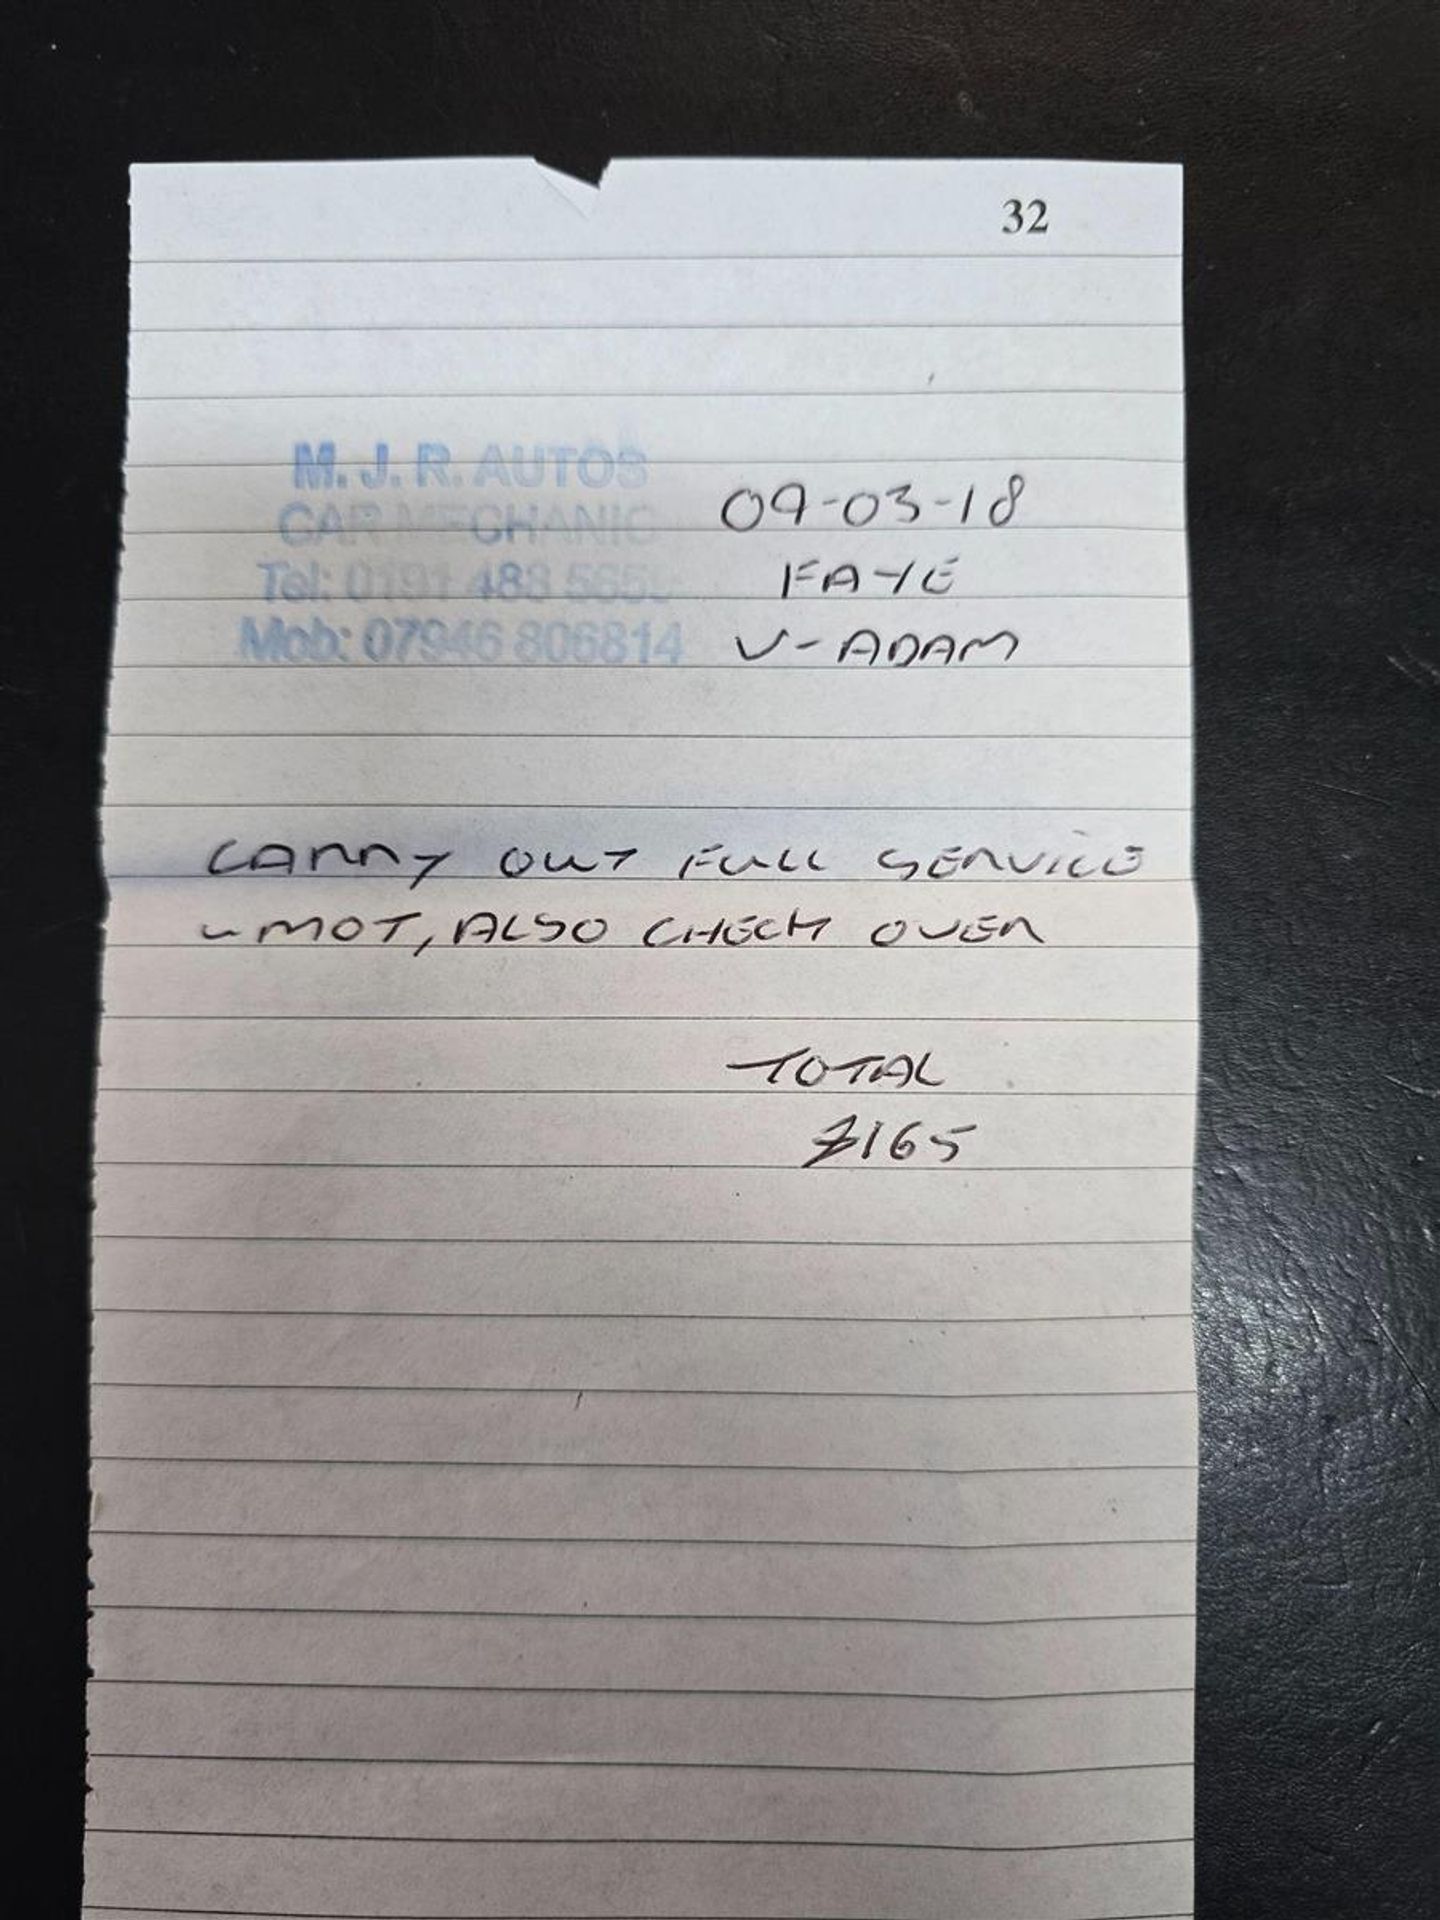 32
M. J. R. AUTOS
CAR MECHANIC
Tel: 0191 483
Mob: 07946 806814
09-03-18
FAYE
V-ADAM
CARRY OUT FULL SERVICE
MOT, ALSO CHECK OVER
TOTAL
£165